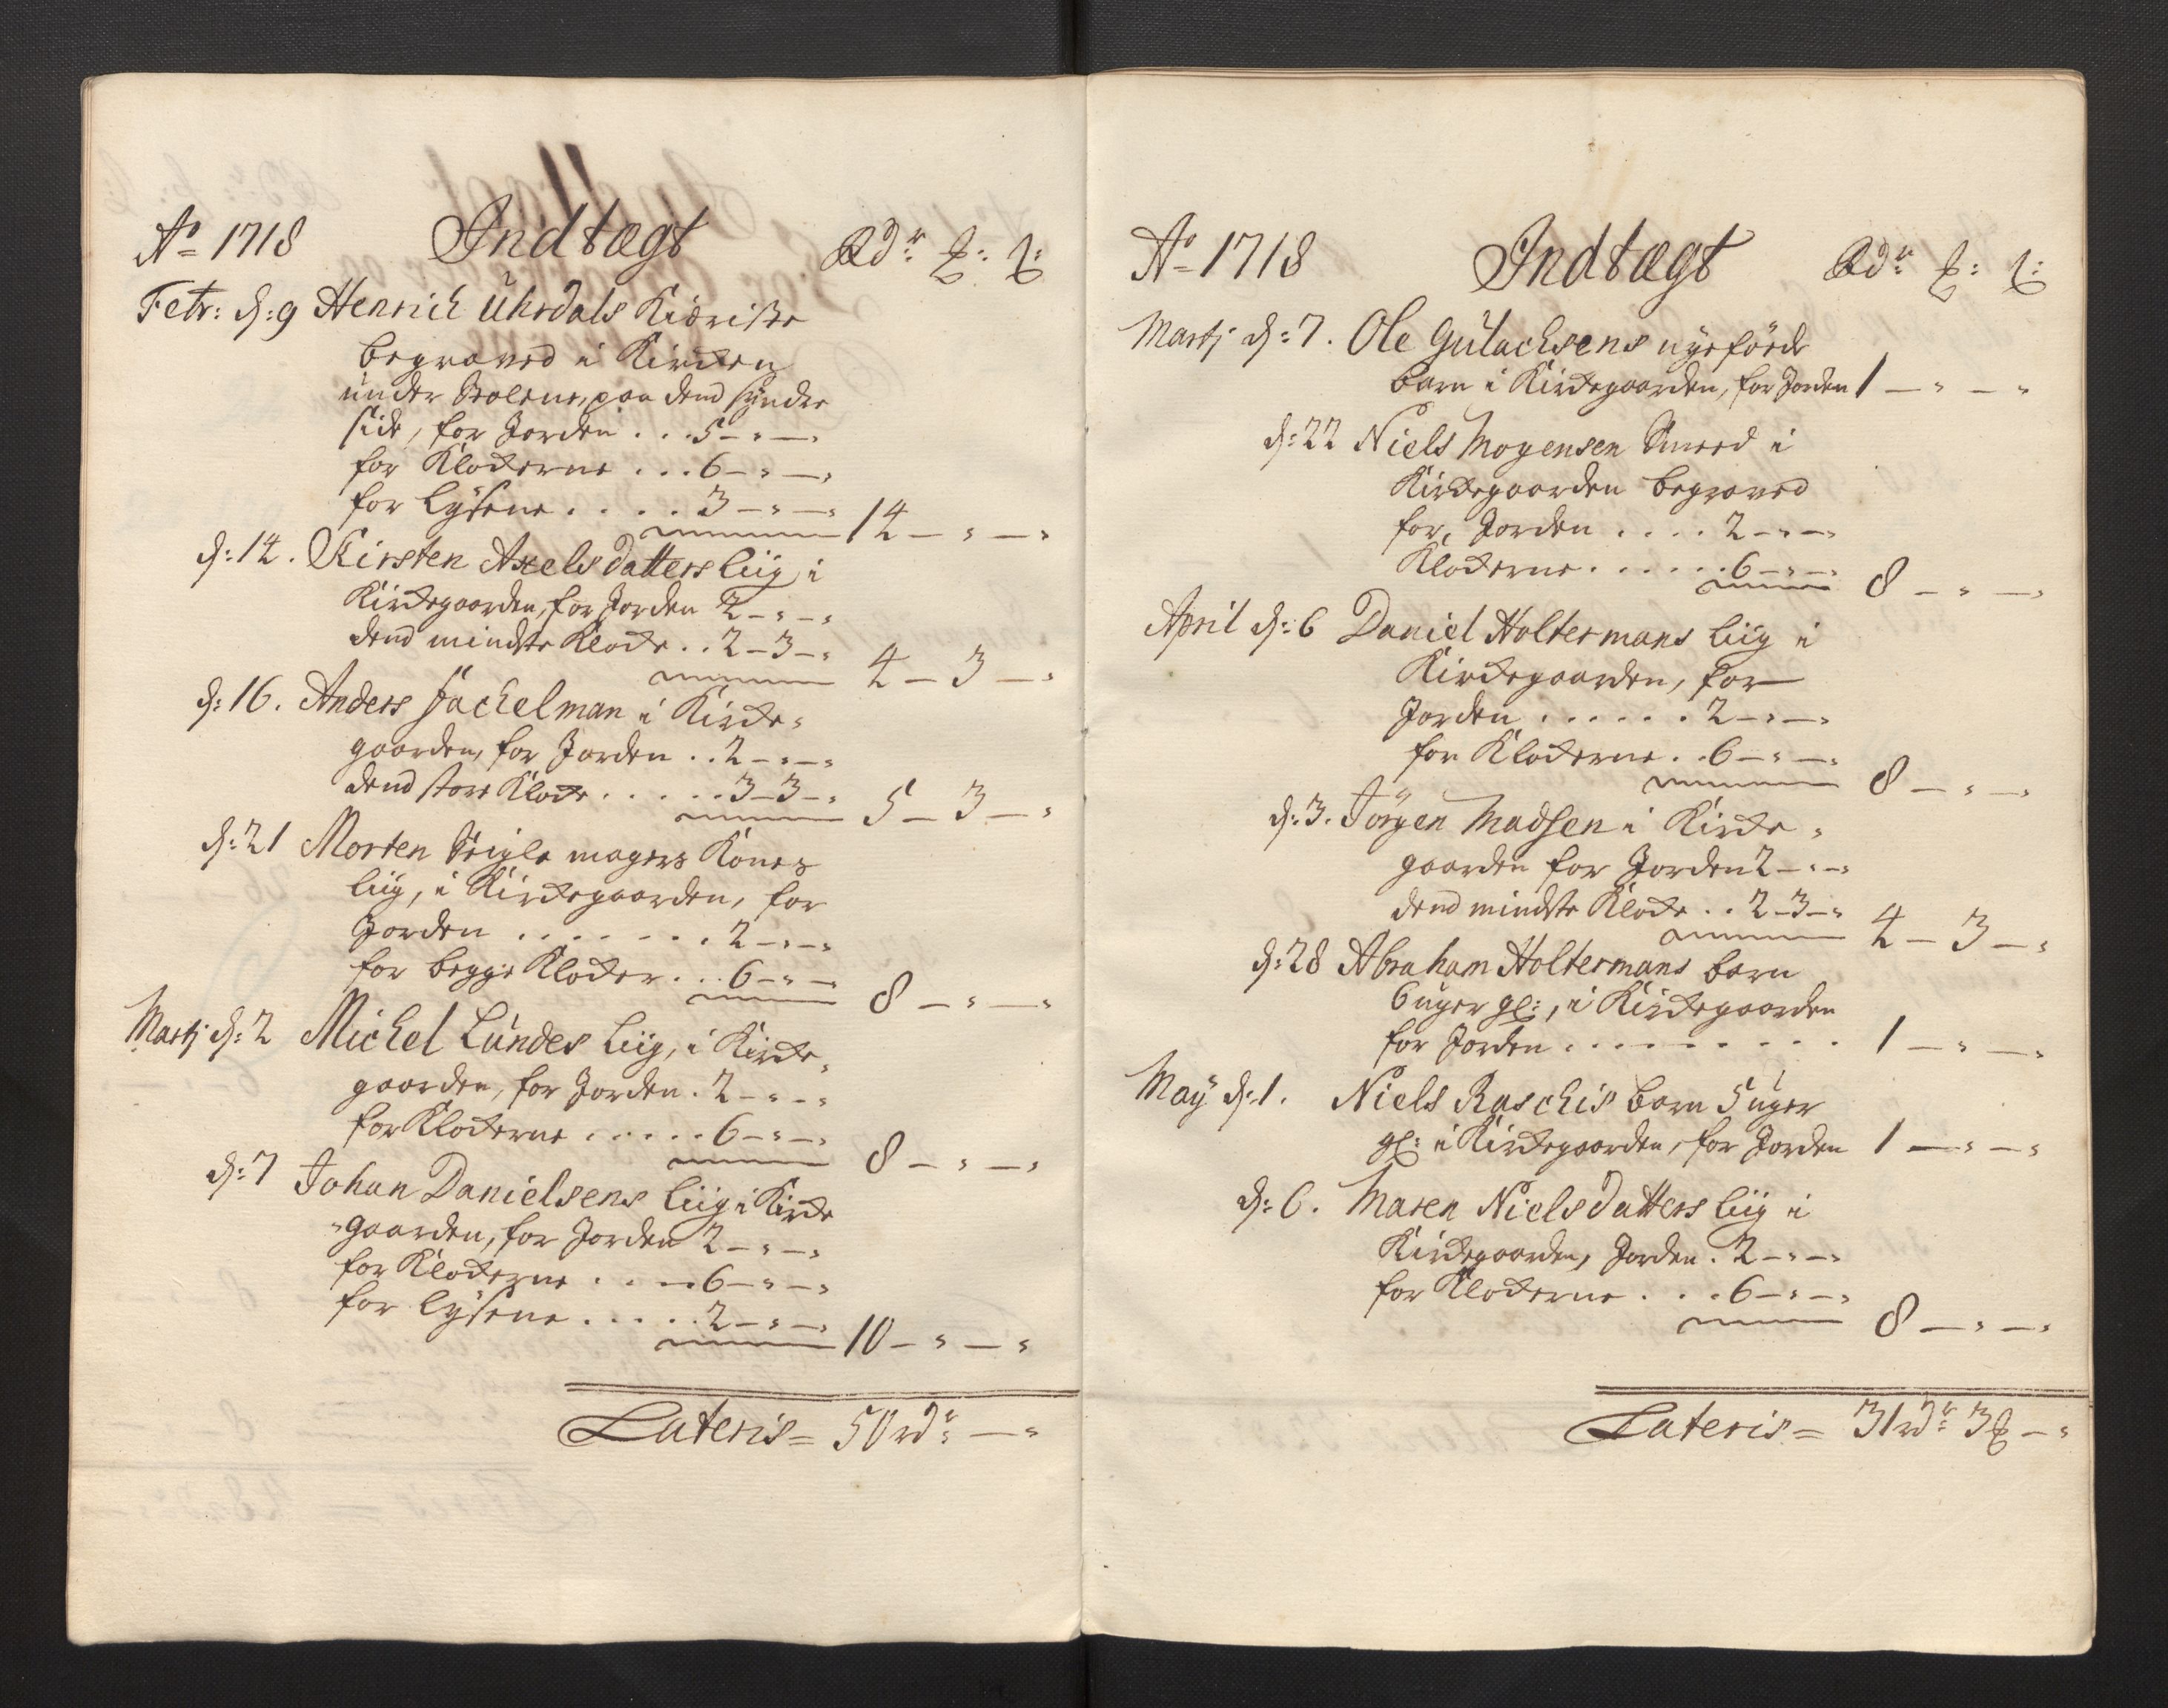 Ao 1718 Indtægt Rdr: ß: ß:
Febr: d: 9 Henrich Uhrdals Kiæriste
begraved i Kircken
under Stolene, paa dend syndre
side, for Jorden . . . 5 - " - "
for Klockerne . . . 6 - " - "
for Lysene . . . . . 3 - " - " 14 - " - "
d: 14. Kirsten Axelsdatters liig i
Kirkegaarden, for Jorden 2 - " - "
dend mindste Klocke . . 2 - 3 - " 4 - 3 - "
d: 16. Anders Jachelman i Kircke-
gaarden, for Jorden . . 2 - " - "
dend store Klocke . . . . . . 3 - 3 - " 5 - 3 - "
d: 21 Morten Seigle magers Kones
liig, i Kirckegaarden, for
Jorden . . . . . . . . 2 - " - "
for begge Klocker . . . 6 - " - " 8 - " - "
Martj d: 2 Michel Lundes liig, i Kircke-
gaarden, for Jorden . 2 - " - "
for Klockerne . . . . . . 6 - " - " 8 - " - "
d: 7 Johan Danielsens liig i Kircke
-gaarden, for Jorden 2 - " - "
for Klockerne . . . . . 6 - " - "
for Lysene . . . . . 2 - " - " 10 - " - "
Lateris = 50 rdr: - "
Ao 1718 Indtægt Rdr: ß: ß:
Martj d: 7. Ole Gulachsens nyeføede
barn i Kirckegaarden, for Jorden 1 - " - "
d: 22 Niels Mogensen Smeed i
Kirckegaarden begraved
for, Jorden . . . . 2 - " - "
Klockerne . . . . . . 6 - " - " 8 - " - "
April d: 6 Daniel Holtermans liig i
Kirckegaarden, for
Jorden . . . . . . 2 - " - "
for Klockerne . . 6 - " - " 8 - " - "
d: 3. Jørgen Madsen i Kircke-
gaarden for Jorden 2 - " - "
dend mindste Klocke . . 2 - 3 - " 4 - 3 - "
d: 28 Abraham Holtermans barn
6 uger gl:, i Kirckegaarden
for Jorden . . . . . . . . . . 1 - " - "
May d: 1. Niels Raschis barn 5 uger
gl: i Kirckegaarden, for Jorden 1 - " - "
d: 6. Maren Nielsdatters liig i
Kirckegaarden, Jorden . 2 - " - "
for Klockerne . . . 6 - " - " 8 - " - "
Lateris = 31 rdr: 3 ß - "